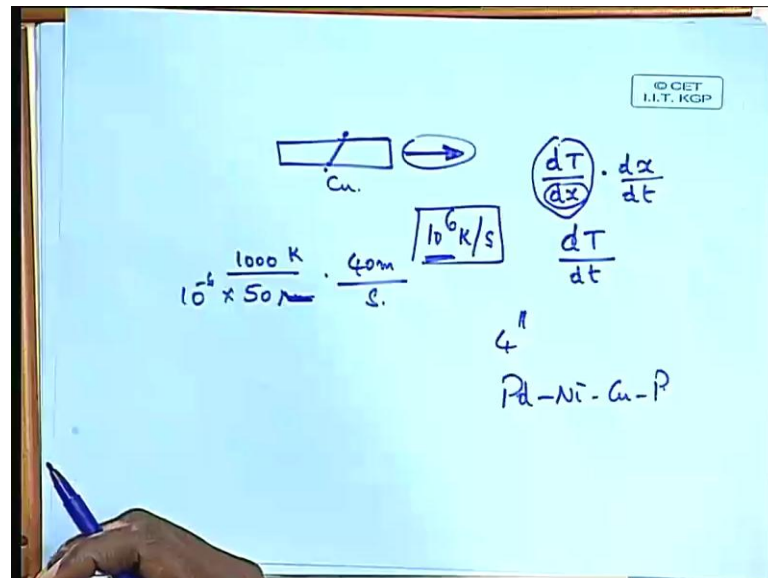 © CET
I.I.T. KGP
Cu.
dT/dx · dx/dt
dT/dt
1000 K / 10⁻⁶ × 50 m · 40m / S.
10⁶ K/S
4"
Pd-Ni-Cu-P